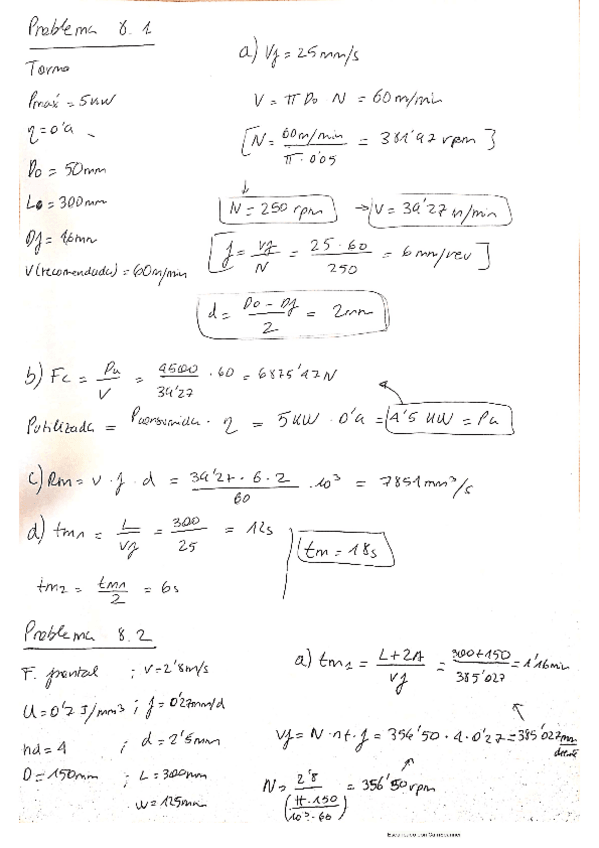 Problema 8.1
Torno
Pmax = 5KW
η = 0'9
Do = 50mm
Lo = 300mm
Df = 46mm
V(recomendada) = 60m/min
a) Vf = 25mm/s
V = π Do N = 60m/min
[N = 60m/min / π · 0'05 = 381'97 rpm]
↓
N = 250 rpm → V = 39'27 m/min
[f = vf / N = 25 · 60 / 250 = 6 mm/rev]
d = Do - Df / 2 = 2mm
b) Fc = Pu / V = 4500 / 39'27 · 60 = 6875'47N
Putilizada = Pconsumida · η = 5KW · 0'9 = 4'5 KW = Pu
c) Rm = v · f · d = 39'27 · 6 · 2 / 60 · 10³ = 7851mm³/s
d) tm1 = L / vf = 300 / 25 = 12s
tm2 = tm1 / 2 = 6s
tm = 18s
Problema 8.2
F. frontal ; v = 2'8m/s
U = 0'7 J/mm³ ; f = 0'27mm/d
nd = 4 ; d = 2'5mm
D = 150mm ; L = 300mm
w = 125mm
a) tm1 = L + 2A / vf = 300 + 150 / 385'027 = 1'16min
vf = N · nt · f = 356'50 · 4 · 0'27 = 385'027 mm
N = 2'8 / (π · 150 / 10³ · 60) = 356'50 rpm